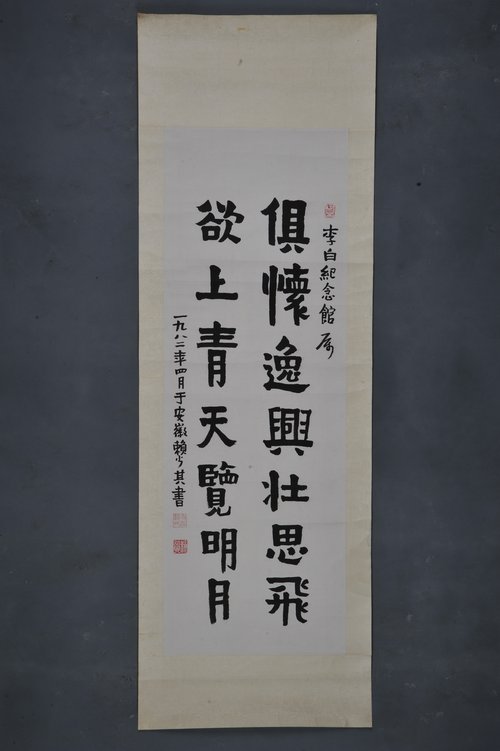 李白紀念館属
俱懷逸興壯思飛
欲上青天覽明月
一九八二年四月于安徽賴少其書